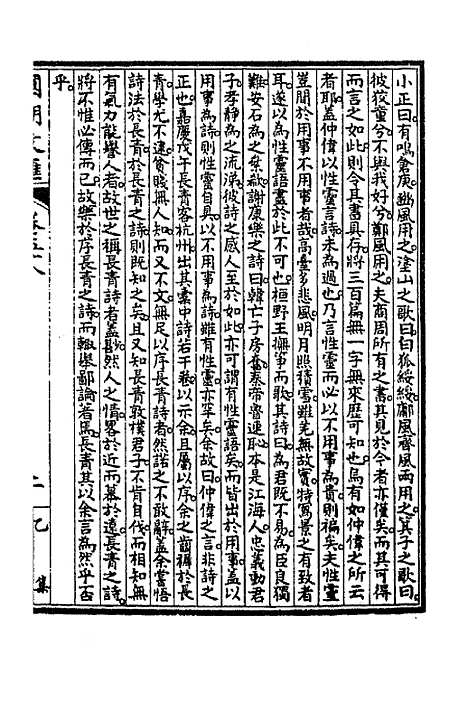 小正曰有鳴倉庚豳風用之塗山之歌曰白狐綏綏鄘風齊風兩用之箕子之歌曰
彼狡童兮不與我好兮鄭風用之夫商周所有之書其見於今者亦僅矣而其可得
而言之如此則令其書具存將三百篇無一字無來歷可知也烏有如仲偉之所云
者耶蓋仲偉以性靈言詩未為過也乃言性靈而必以不用事為貴則褊矣夫性靈
豈關於用事不用事者哉高臺多悲風明月照積雪雖羌無故實特寫景之有致者
耳遂以為性靈語盡於此不可也桓野王撫箏而歌其詩曰為君既不易為臣良獨
難安石為之矣歟謝康樂之詩曰韓亡子房奮秦帝魯連恥本是江海人忠義動君
子孝靜為之流涕彼詩之感人至於如此亦可謂有性靈語矣而皆出於用事蓋以
用事為詩則性靈自具以不用事為詩雖有性靈亦罕矣余故曰仲偉之言非詩之
正也嘉慶戊午長青客杭州出其橐中詩若干卷以示余且屬以序余之齒稱於長
青學尤不逮貧賤無人知而又不文無足以序長青詩者然諾之不敢辭蓋余嘗悟
詩法於長青於長青之詩則既知之矣且又知長青敦樸君子不肯自伐而相知無
有氣力能譽人者故世之稱長青詩者蓋尠然人之情畧於近而慕於遠長青之詩
將不惟必傳而已故樂於序長青之詩而輒舉鄙論者焉長青其以余言為然乎否
乎
國朝文匯
卷五八
二
乙集